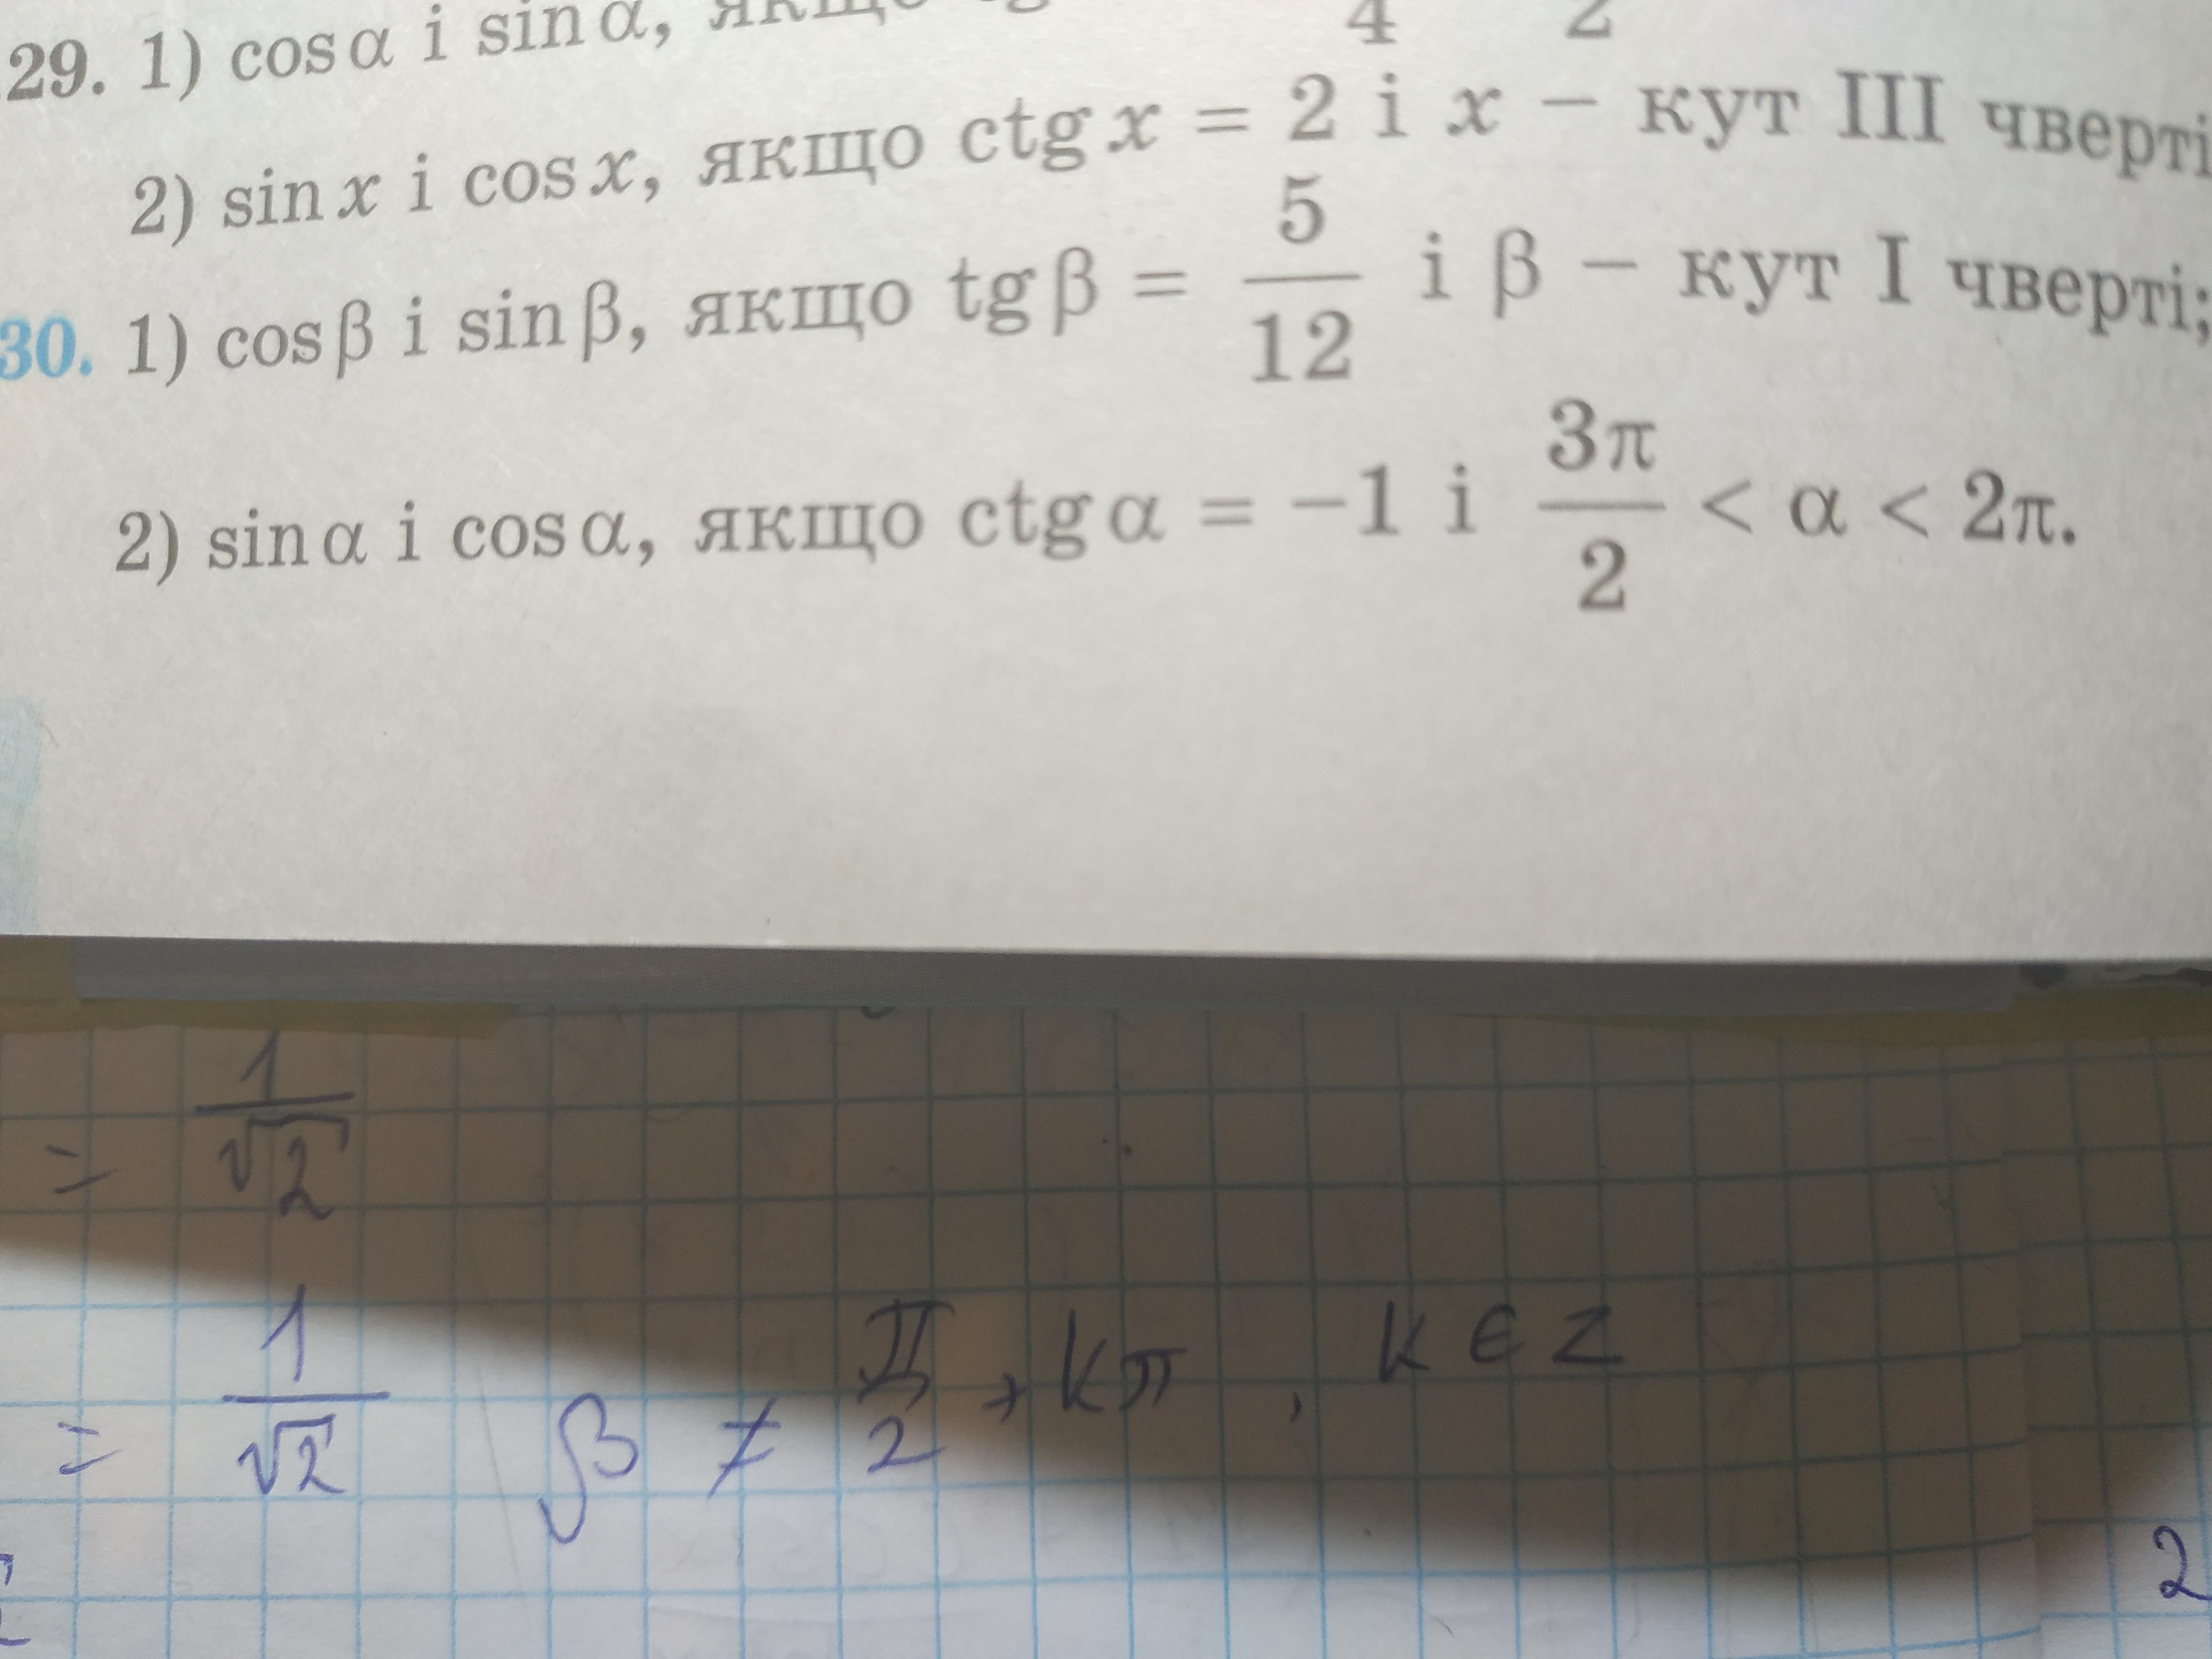 29. 1) cos α і sin α,
4 2
2) sin x і cos x, якщо ctg x = 2 і x – кут III чверті
30. 1) cos β і sin β, якщо tg β = 5/12 і β – кут I чверті;
2) sin α і cos α, якщо ctg α = −1 і 3π/2 < α < 2π.
= 1/√2
= 1/√2 β ≠ π/2 + kπ, k ∈ Z
2